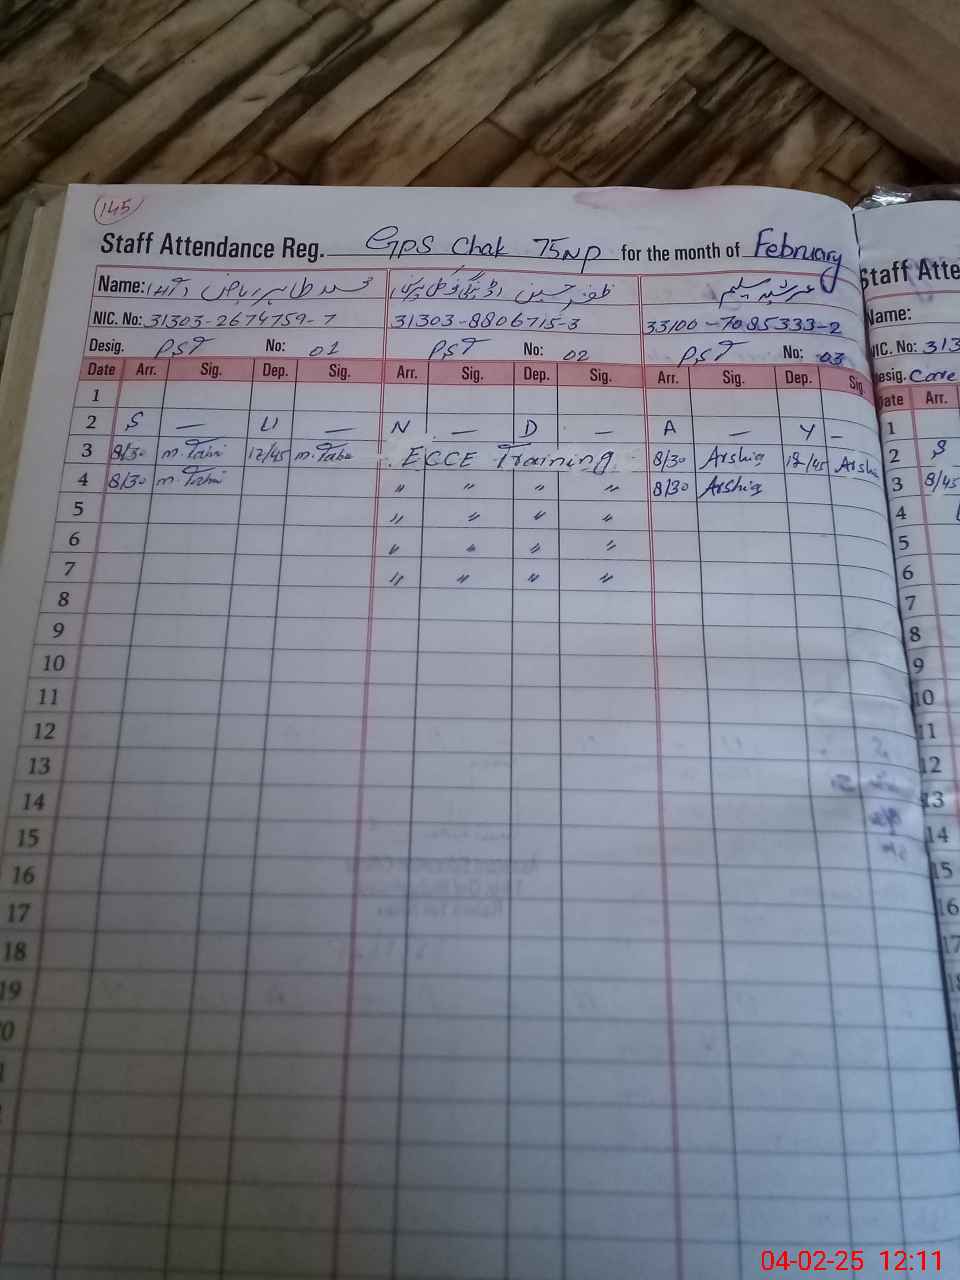 145
Staff Attendance Reg. GPS Chak 75NP for the month of February
Name: محمد طاہر ریاض ظفر حسین عرشیہ سلیم
NIC. No: 31303-2674759-7 31303-8806715-3 33100-7085333-2
Desig. PST No: 01 PST No: 02 PST No: 03
Date Arr. Sig. Dep. Sig. Arr. Sig. Dep. Sig. Arr. Sig. Dep. Sig.
1
2 S — U — N — D — A — Y —
3 8/30 M.Tahir 12/45 M.Tahir ECCE Training 8/30 Arshia 12/45 Arshia
4 8/30 M.Tahir " " " " 8/30 Arshia
5 " " " "
6 " " " "
7 " " " "
8
9
10
11
12
13
14
15
16
17
18
19
Staff Atte
Name:
NIC. No: 313
Desig. Care
Date Arr.
1
2 S
3 8/45
4
5
6
7
8
9
10
11
12
13
14
15
16
17
04-02-25 12:11